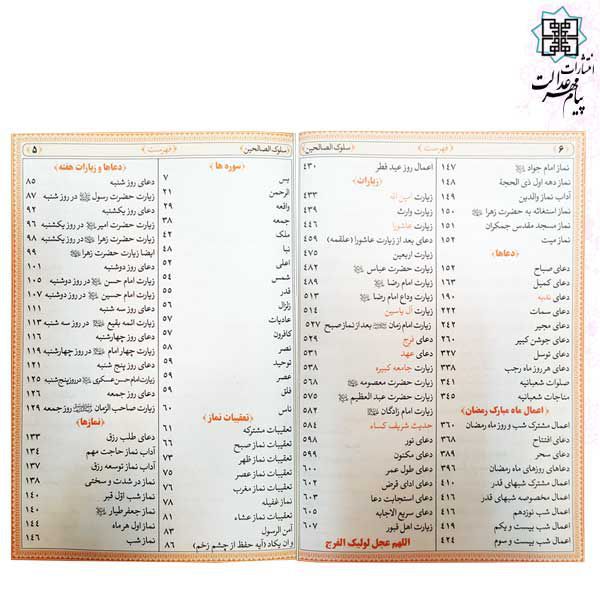 انتشارات
پیام مهر عدالت
۵
سلوک الصالحین
فهرست
سوره ها
یس ۷
الرحمن ۲۱
واقعه ۲۹
جمعه ۳۸
ملک ۴۲
نبا ۴۸
اعلی ۵۲
شمس ۵۴
قدر ۵۵
زلزال ۵۶
عادیات ۵۷
کافرون ۵۷
نصر ۵۸
توحید ۵۹
عصر ۵۹
فلق ۵۹
ناس ۶۰
تعقیبات نماز
تعقیبات مشترکه ۶۱
تعقیبات نماز صبح ۶۶
تعقیبات نماز ظهر ۷۳
تعقیبات نماز عصر ۷۵
تعقیبات نماز مغرب ۷۶
نماز غفیله ۷۸
تعقیبات نماز عشاء ۸۱
آمن الرسول ۸۳
و ان یکاد (آیه حفظ از چشم زخم) ۸۶
دعاها و زیارات هفته
دعای روز شنبه ۸۵
زیارت حضرت رسول در روز شنبه ۸۷
دعای روز یکشنبه ۹۲
زیارت حضرت امیر در روز یکشنبه ۹۶
زیارت حضرت زهرا در روز یکشنبه ۹۸
ایضا زیارت حضرت زهرا ۹۹
دعای روز دوشنبه ۱۰۱
زیارت امام حسن در روز دوشنبه ۱۰۵
زیارت امام حسین در روز دوشنبه ۱۰۷
دعای روز سه شنبه ۱۱۱
زیارت ائمه بقیع در روز سه شنبه ۱۱۳
دعای روز چهارشنبه ۱۱۶
زیارت چهار امام در روز چهارشنبه ۱۱۹
دعای روز پنج شنبه ۱۲۱
زیارت امام حسن عسکری در روز پنج شنبه ۱۲۵
دعای روز جمعه ۱۲۶
زیارت صاحب الزمان روز جمعه ۱۲۹
نمازها
دعای طلب رزق ۱۳۳
آداب نماز حاجت مهم ۱۳۴
آداب نماز توسعه رزق ۱۳۷
نماز در شدت و سختی ۱۳۸
نماز شب اوّل قبر ۱۴۰
نماز جعفر طیار ۱۴۰
نماز اول هر ماه ۱۴۴
نماز شب ۱۴۶
۶
فهرست
سلوک الصالحین
نماز امام جواد ۱۴۷
نماز دهه اول ذی الحجة ۱۴۸
آداب نماز والدین ۱۴۹
نماز استغاثه به حضرت زهرا ۱۵۰
نماز مسجد مقدس جمکران ۱۵۱
نماز میت ۱۵۲
دعاها
دعای صباح ۱۵۲
دعای کمیل ۱۶۳
دعای ندبه ۱۹۰
دعای سمات ۲۲۲
دعای مجیر ۲۴۲
دعای جوشن کبیر ۲۶۰
دعای توسل ۳۲۷
دعای هر روز ماه رجب ۳۳۸
صلوات شعبانیه ۳۴۱
مناجات شعبانیه ۳۴۵
اعمال ماه مبارک رمضان
اعمال مشترک شب و روز ماه رمضان ۳۶۰
دعای افتتاح ۳۶۸
دعای سحر ۳۸۹
دعاهای روزهای ماه رمضان ۳۹۶
اعمال مشترک شبهای قدر ۴۱۰
اعمال مخصوصه شبهای قدر ۴۱۶
اعمال شب نوزدهم ۴۱۶
اعمال شب بیست و یکم ۴۱۹
اعمال شب بیست و سوم ۴۲۴
اعمال روز عید فطر ۴۳۰
زیارات
زیارت امین الله ۴۳۳
زیارت وارث ۴۳۹
زیارت عاشورا ۴۴۶
دعای بعد از زیارت عاشورا (علقمه) ۴۵۹
زیارت اربعین ۴۷۵
زیارت حضرت عباس ۴۸۲
زیارت امام رضا ۴۸۹
زیارت وداع امام رضا ۵۱۳
زیارت آل یاسین ۵۱۴
زیارت امام زمان بعد از نماز صبح ۵۲۷
دعای فرج ۵۲۹
دعای عهد ۵۳۱
زیارت جامعه کبیره ۵۳۸
زیارت حضرت معصومه ۵۶۸
زیارت حضرت عبدالعظیم ۵۷۵
زیارت امام زادگان ۵۸۲
حدیث شریف کساء ۵۸۴
دعای نور ۵۹۸
دعای مکنون ۵۹۹
دعای طول عمر ۶۰۰
دعای ادای قرض ۶۰۲
دعای استجابت دعا ۶۰۳
دعای سریع الاجابه ۶۰۵
زیارت اهل قبور ۶۰۷
اللهم عجل لولیک الفرج